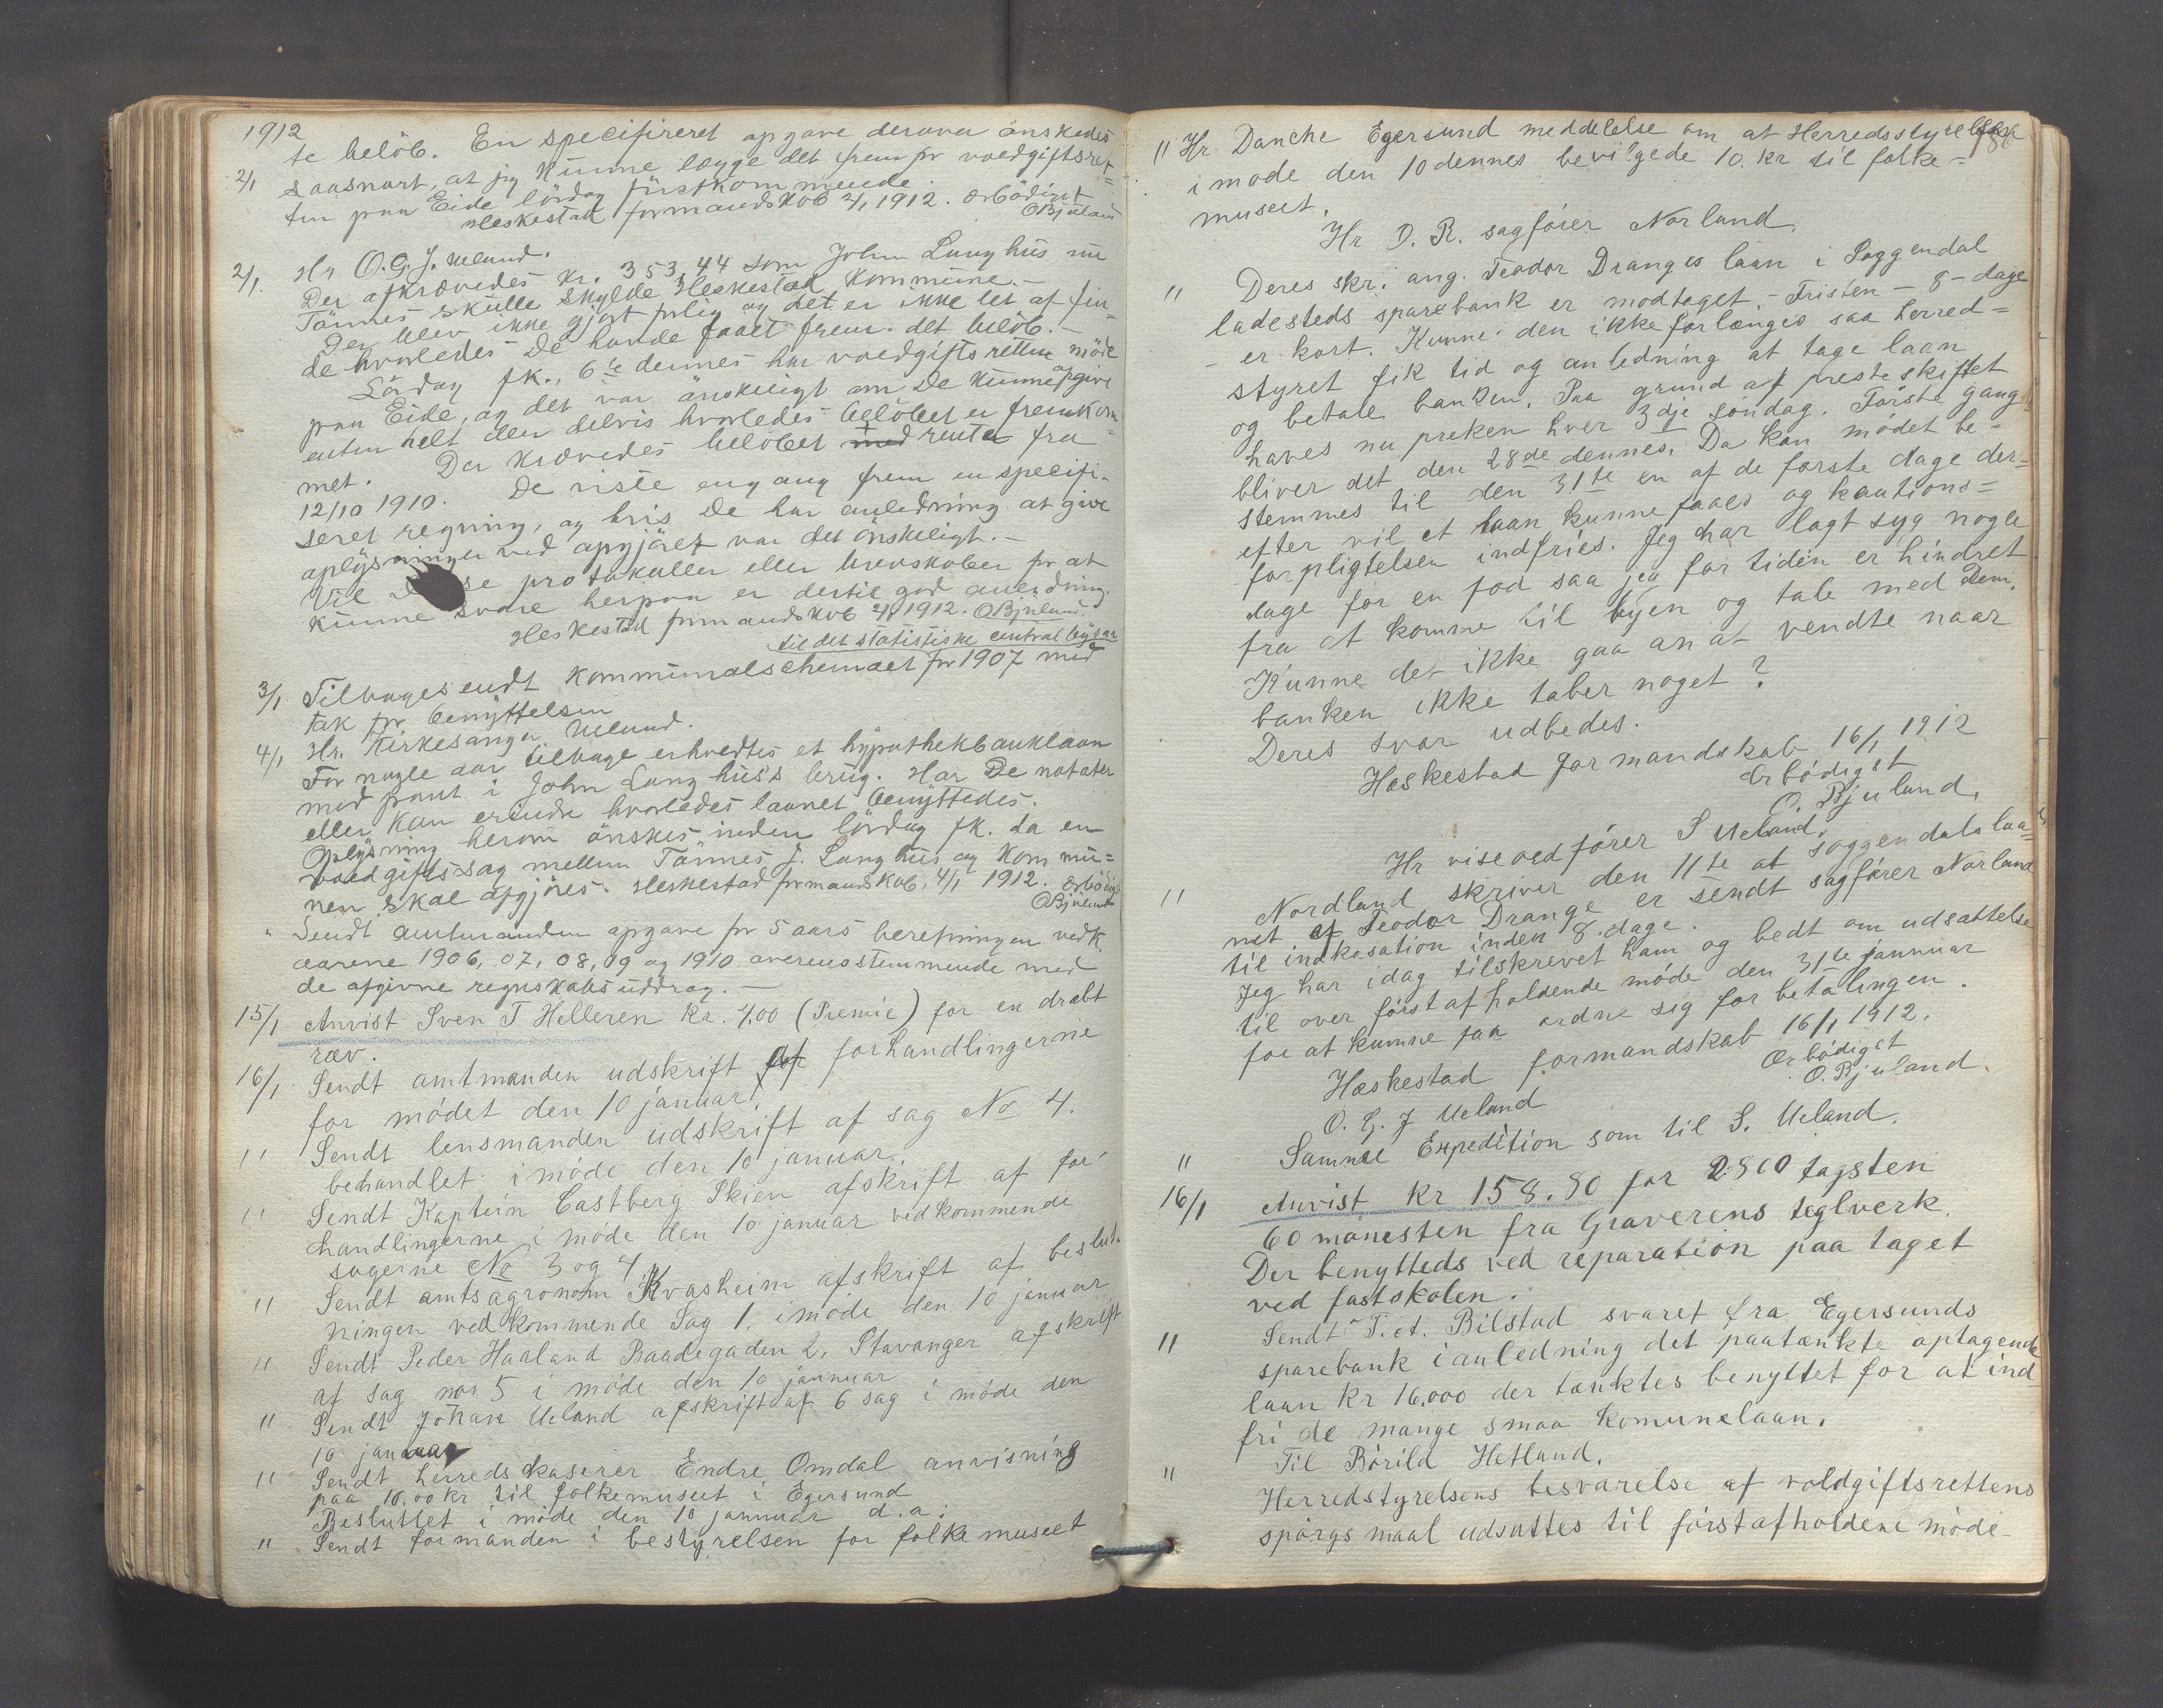 1912
te belöb. En specifireret opgave derover önskedes
2/1 saasnart, at jeg kunne lægge det frem for voldgiftsret=
ten paa Eide lördag förstkommende.
Heskestad formandskob 2/1 1912. Ærbödigst
OBjuland
2/1. Hr O.G.J. Ueland.
Der afkrævedes kr. 353,44 som John Lunghus nu
Tönnes skulde skylde Heskestad kommune.-
Der blev ikke gjort pilig og det er ikke let at fin-
de hvorledes De havde faaet frem det belöb.-
Lördag fk., 6te dennes har voldgiftsretten möde
paa Eide, og det var önskeligt om De kunne opgive
enten helt eller delvis hvorledes belöbet er fremkom=
met. Der krævedes belöbet med renter fra
12/10 1910. De viste engang frem en specifi-
seret regning, og hvis De har anledning at give
oplysninger ved opgjöret var det önskeligt.-
Vil De se protokoller eller brevskober for at
kunne svare herpaa er dertil god anledning.
Heskestad formandskob 2/1 1912. OBjuland.
til det statistiske centralbyraa
3/1 Tilbagesendt kommunalschemaet for 1907 med
tak for benyttelsen
4/1 Hr. Kirkesanger Ueland.
For nogle aar tilbage erhvedtes et hypothekbanklaan
mod pant i John Lunghus's brug. Har De notater
eller kan erindre hvorledes laanet benyttedes.
Oplysning herom önskes inden lördag fk. da en
voldgiftssag mellem Tönnes J. Lunghus og kommu=
nen skal afgjöres. Heskestad formandskob, 4/1 1912. Ærbödigst
OBjuland
" Sendt amtmanden opgave for 5 aars beretningen vedk.
aarene 1906, 07, 08, 09 og 1910 overensstemmende med
de afgivne regnskabsuddrag.-
15/1 Anvist Sven T Helleren Kr. 4,00 (Premie) for en dræbt
ræv.
16/1 Sendt amtmanden udskrift af forhandlingerne
for mödet den 10 januar.
" Sendt lensmanden udskrift af sag No 4.
behandlet i möde den 10 januar.
" Sendt Kaptein Castberg Skien afskrift af for
handlingerne i möde den 10 januar vedkommende
sagerne No 3 og 4
" Sendt amtsagronom Kvasheim afskrift af beslut.
ningen vedkommende Sag 1. i möde den 10 januar
" Sendt Peder Haaland Baadegaden 2, Stavanger afskrift
af sag nor 5 i möde den 10 jannuar
" Sendt Johan Ueland afskrift af 6 sag i möde den
10 januar
" Sendt herredskaserer Endre Omdal anvisning
paa 10.00 kr til folkemuseet i Egersund
Besluttet i möde den 10 jannuar d.a.
" Sendt formanden i bestyrelsen for folkemuseet
186
" Hr Danche Egersund meddelelse om at Herredsstyrelsen
i møde den 10 dennes bevilgede 10. kr til folke=
museet.
Hr O. R. sagfører Norland.
" Deres skr. ang. Teodor Dranges laan i Soggendal
ladesteds sparebank er modtaget.- Fristen - 8 - dage
- er kort. Kunne den ikke forlænges saa herred=
styret fik tid og anledning at tage laan
og betale banken. Paa grund af presteskiftet
haves nu preken hver 3dje søndag. Første gang
bliver det den 28de dennes. Da kan mødet be=
stemmes til den 31te en af de første dage der=
efter vil et laan kunne faaes og kautions=
forpligtelsen indfries. Jeg har lagt syg nogle
dage for en fod saa jeg for tiden er hindret
fra at komme til byen og tale med Dem.
Kunne det ikke gaa an at vendte naar
banken ikke taber noget?
Deres svar udbedes.
Heskestad formandskab 16/1 1912
Ærbödigst
O. Bjuland.
Hr viseordfører S Ueland.
" Nordland skriver den 11te at soggendalslaa=
net af Teodor Drange er sendt sagfører Norland
til indkasation inden 8. dage.
Jeg har idag tilskrevet ham og bedt om udsættelse
til over førstafholdende møde den 31te jannuar
for at kunne faa ordne sig for betalingen.
Heskestad formandskab 16/1 1912.
Ærbödigst
O. Bjuland.
O. G. J Ueland
" Samme Expedition som til S. Ueland.
16/1 Anvist kr 158.80 for 2800 tagsten
60 mønesten fra Graverens teglverk.
Der benytteds ved reparation paa taget
ved fastskolen.
" Sendt T. A. Bilstad svaret fra Egersunds
sparebank i anledning det paatænkte optagende
laan kr 16.000 der tænktes benyttet for at ind-
fri de mange smaa komunelaan.
Til Börild Hetland.
" Herredstyrelsens besvarelse af voldgiftsrettens
spørgsmaal udsattes til førstafholdene møde-